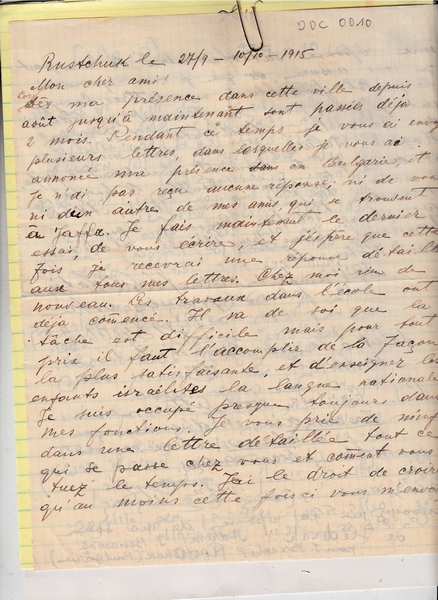 DOC 0010
Rustchuk le 27/9 - 10/10 - 1915
Mon cher ami!
ma présence dans cette ville depuis
août jusqu'à maintenant sont passés déjà
2 mois. Pendant ce temps je vous ai envoy
plusieurs lettres, dans lesquelles je vous ai
annoncé ma présence en Bulgarie, et
je n'ai pas reçu aucune réponse, ni de vou
ni d'un autre de mes amis, qui se trouvent
à Jaffa. Je fais maintenant le dernier
essai, de vous écrire, et j'éspère que cette
fois je recevrai une réponse détaillé
aux tous mes lettres. Chez moi rien de
nouveau. Les travaux dans l'école ont
déja comencé. Il va de soi que la
tâche est difficile mais pour tout
prix il faut l'accomplir de la façon
la plus satisfaisante, et d'enseigner les
enfants israélites la langue nationale
Je suis occupé presque toujours dans
mes fonctions. Je vous prie de
dans une lettre détaillée tout ce
qui se passe chez vous et coment vous
tuez le temps. J'ai le droit de croire
qu'au moins cette fois ci vous m'envoe